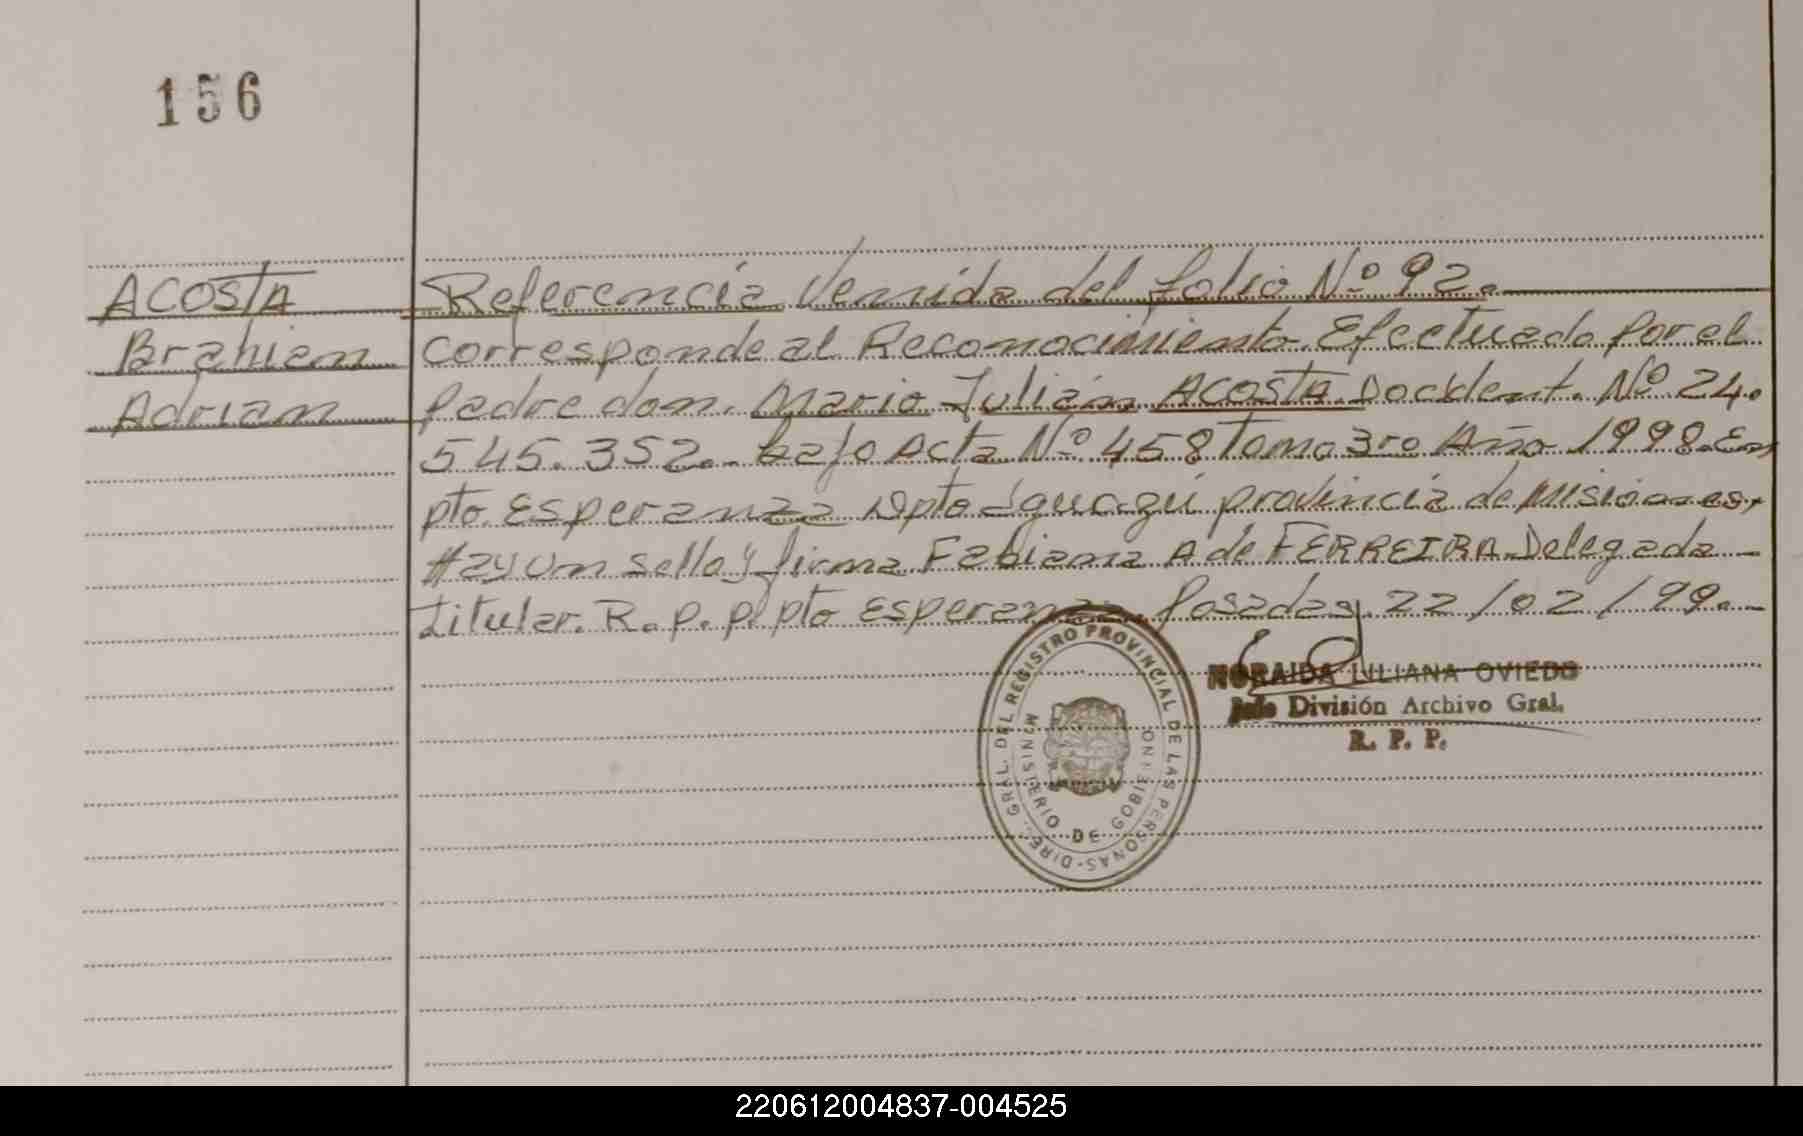 156
ACOSTA
Brahian
Adrian
Referencia Venida del folio Nº 92.
corresponde al Reconocimiento Efectuado por el
padre don. Mario Julián ACOSTA. Doc Ident. Nº 24.
545.352.- bajo Acta Nº 458 Tomo 3ro Año 1998. En
pto. Esperanza Dpto Iguazú provincia de Misiones,
Hay un sello y firma Fabiana A de FERREIRA. Delegada
titular. R. p. p. pto Esperanza. posadas, 22/02/99.-
DIREC. GRAL. DEL REGISTRO PROVINCIAL DE LAS PERSONAS
MINISTERIO DE GOBIERNO
NORAIDA LILIANA OVIEDO
Jefe División Archivo Gral.
R. P. P.
220612004837-004525